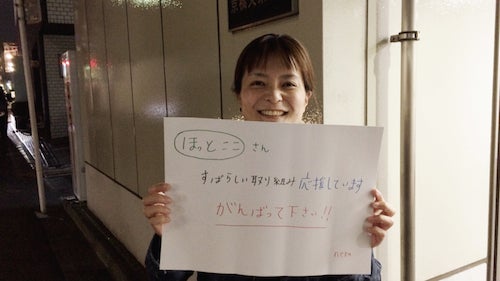 ほっとここさん
すばらしい取り組み応援しています
がんばって下さい!!